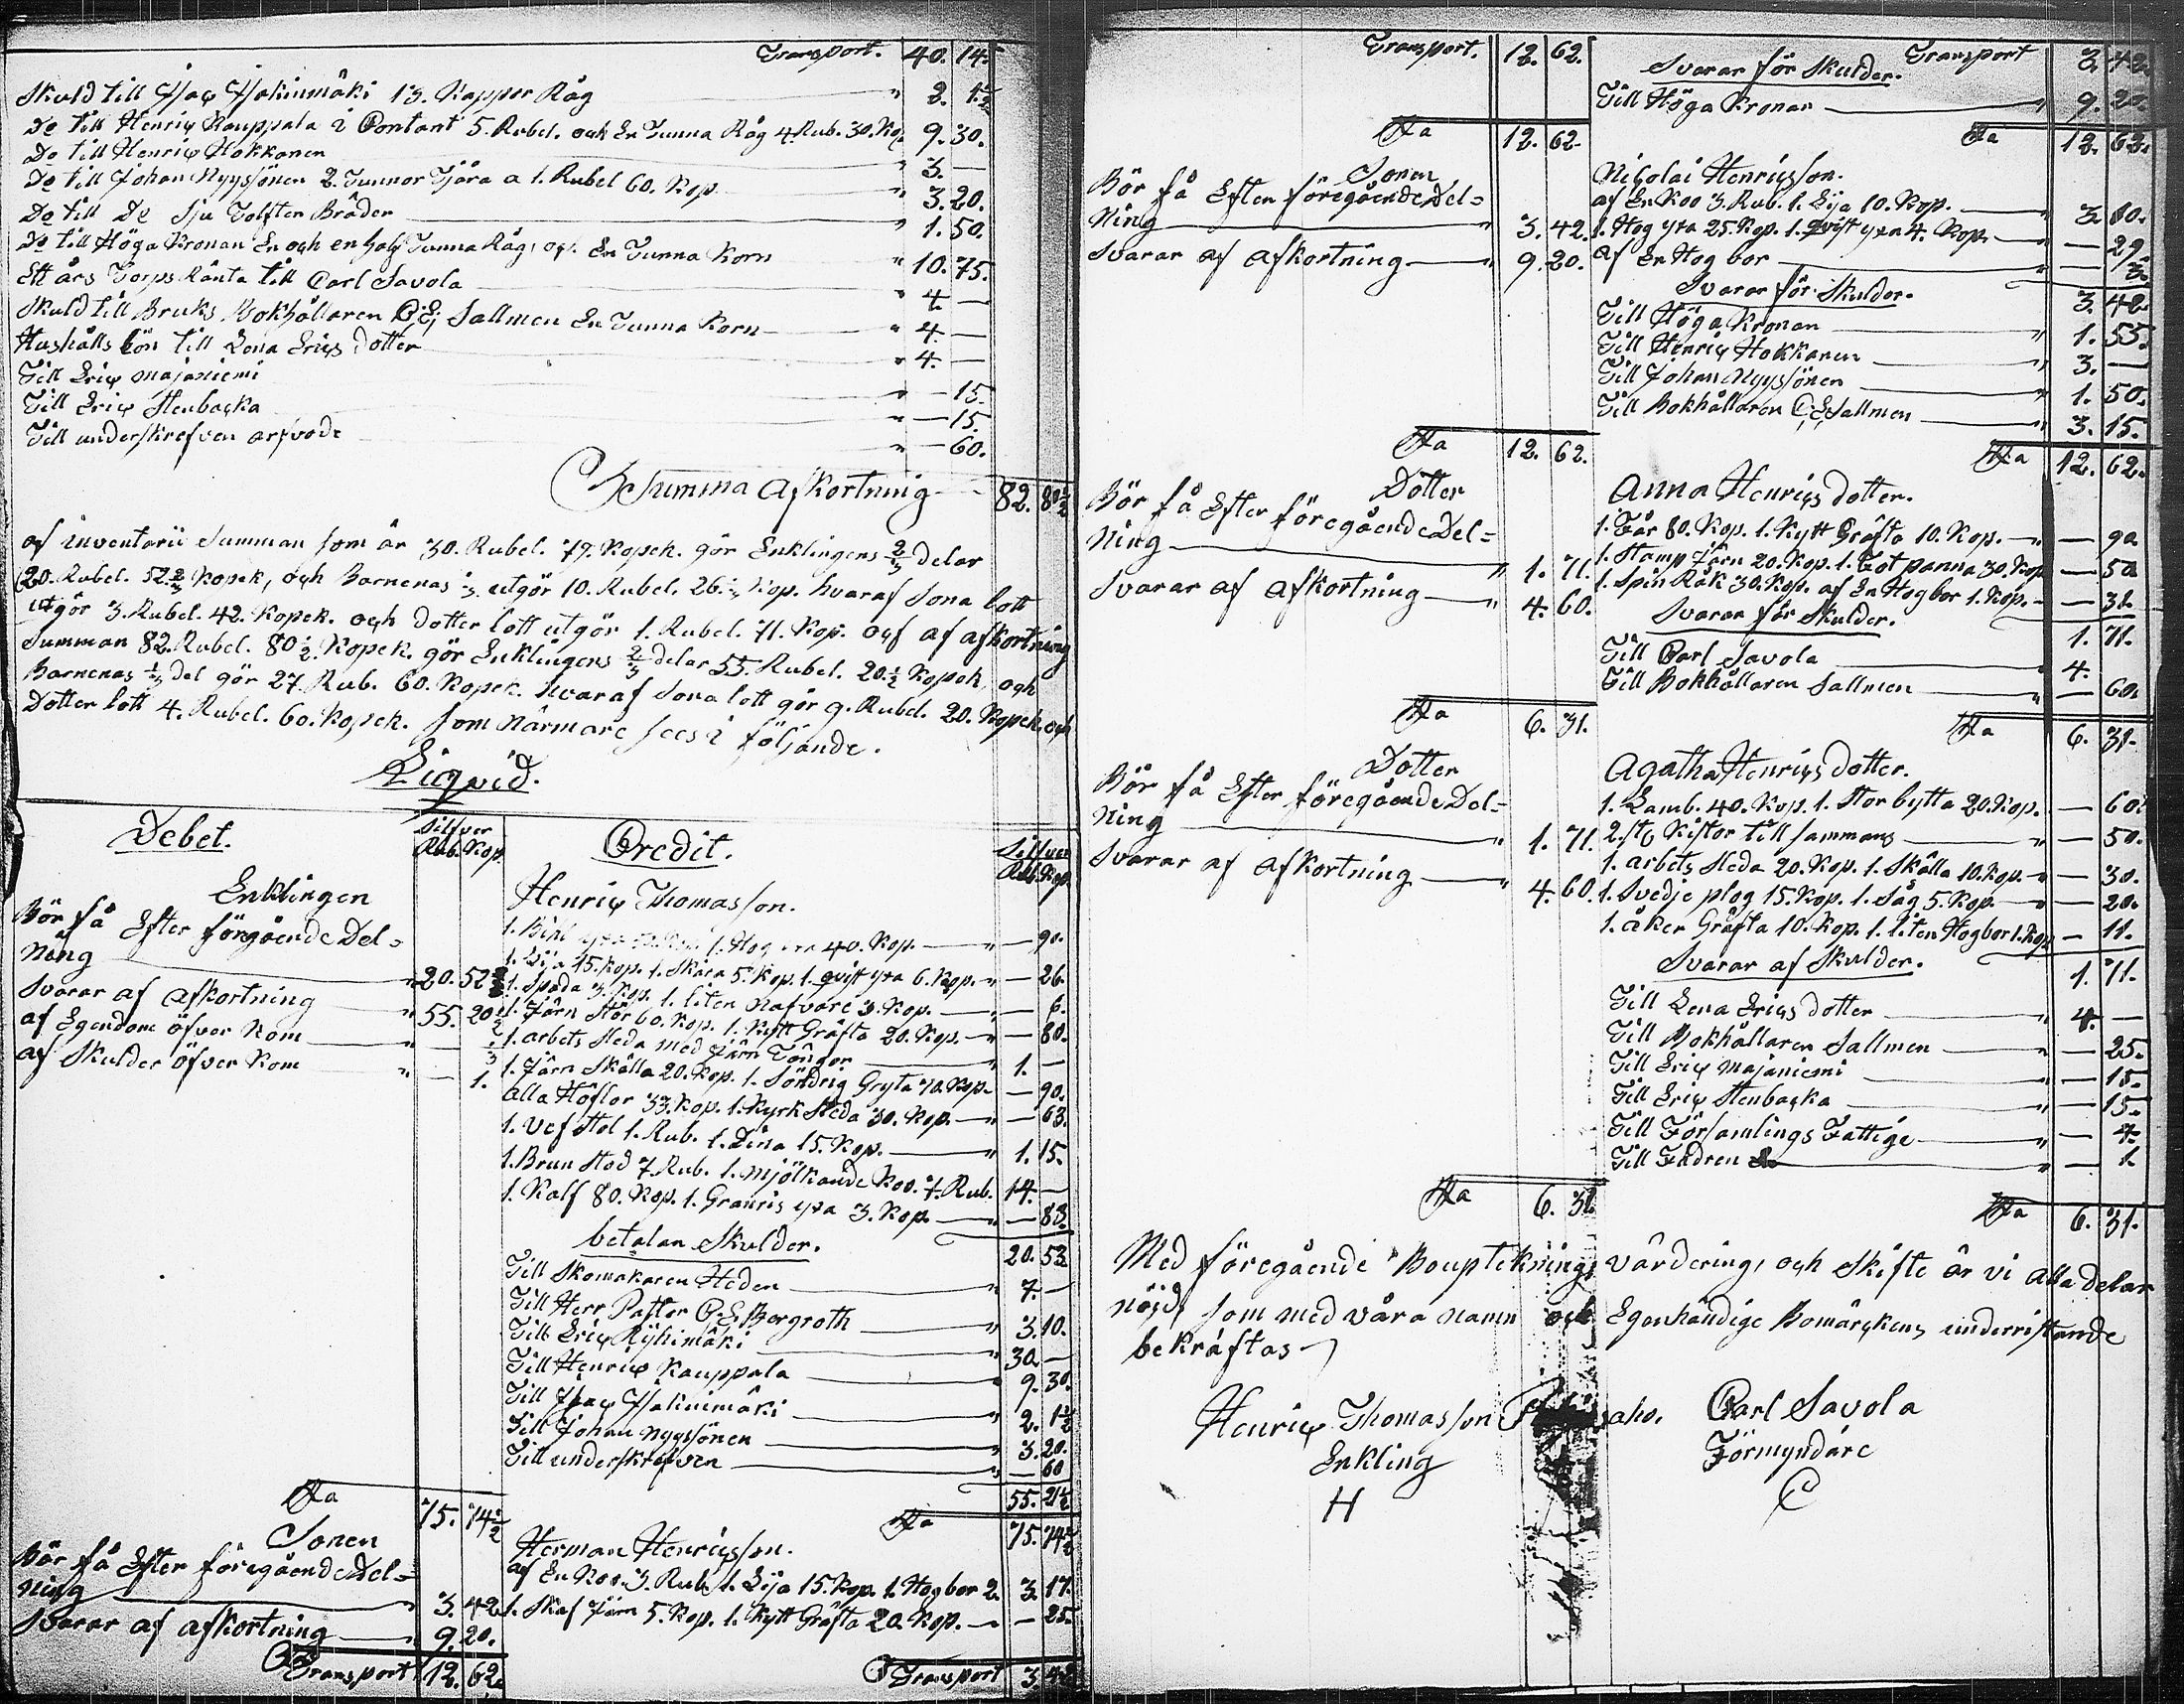 Transport. 40. 14.
Skuld till 13. Kappor Råg " 2. 1½
Do till Henric Kauppala i Contant 5. Rubel. och En Tunna Råg 4. Rub. 30. Ko 9. 30.
Do till Henric Hokkanen " 3. —
Do till Johan Nyyssönen 2. Tunnor Tjära a 1. Rubel 60. Kop " 3. 20.
Do till De Sju Tolfter Bräder " 1. 50.
Do till Höga Kronan En och en half Tunna Råg, och En Tunna Korn " 10. 75.
Ett års Torps Ränta till Carl Savola " 4. —
Skuld till Bruks Bokhållaren C: E; Sallmen En Tunna Korn " 4. —
Hushålls lön till Lena Erics dotter " 4. —
Till Eric Majaniemi " — 15.
Till Eric Stenbacka " — 15.
Till underskrefven arfvode " — 60.
Summa Afkortning 82. 80½
af inventarii Summan som är 30. Rubel. 79. Kopek. gör Enklingens ⅔ delar
20. Rubel. 52⅔ Kopek, och Barnenas ⅓ utgör 10. Rubel. 26⅓ Kop. hvaraf Sona lott
utgör 3. Rubel. 42. Kopek. och dotter lott utgör 1. Rubel. 71. Kop. och af afkortning
Summan 82. Rubel. 80½. Kopek. gör Enklingens ⅔ delar 55. Rubel. 20½ Kopek, och
Barnenas ⅓ del gör 27. Rub. 60. Kopek. hvaraf Sona lott gör 9. Rubel. 20. Kopek. och
Dotter lott 4. Rubel. 60. Kopek. som närmare sees i följande.
Liqvid.
Debet. Silfver Rub. Kop
Enklingen
Bör få Efter föregående Del=
ning " 20. 52⅔
Svarar af Afkortning " 55. 20½
af Egendom öfver Kom — ⅓
af Skulder öfver Kom " — 1.
Sa 75. 74½
Sonen
Bör få Efter föregående Del=
ning 3. 42
Svarar af afkortning 9. 20.
Transport 12. 62.
Credit. Silfver Rub. Kop
Henric Thomasson.
1. Bihl yxa 1. Hog yxa 40. Kop. — " — 90.
1. Lija 15. Kop. 1. Skära 5. Kop. 1. qvist yxa 6. Kop. — 26.
1. Spada 3. Kop. 1. liten Nafvare 3. Kop. — 6.
1. Järn Stör 60. Kop. 1. Kytt Gräfta 20. Kop. — 80.
1. arbets Släda med Järn " 1. —
1. Järn Skålla 20. Kop. 1. Söndrig Gryta 70. Kop. — 90.
alla 33. Kop. 1. Kyrk Släda 30. Kop. — " — 63.
1. Vef Stol 1. Rub. 1. 15. Kop. — " 1. 15.
1. Brun Stod 7. Rub. 1. Mjölkande Koo. 7. Rub. 14. —
1. Kalf 80. Kop. 1. Granris yxa 3. Kop. — " — 83.
betalar Skulder. 20. 53
Till Skomakaren Heden " 7. —
Till Herr Pastor C. E. Bergroth " 3. 10.
Till Eric Ryhimäki " 30. —
Till Henric Kauppala " 9. 30.
Till " 2. 1½
Till Johan Nyyssönen " 3. 20.
Till underskrefven " — 60
55. 21½
Sa 75. 74½
Herman Henricsson.
af En Koo. 3. Rub. 1. Lija 15. Kop. 1. Hog bor 2. 3. 17.
1. Skaf Järn 5. Kop. 1. Kytt Gräfta 20. Kop. — — 25.
Transport 3. 42
Transport. 12. 62.
Sa 12. 62.
Sonen
Bör få Efter föregående Del=
ning " 3. 42.
Svarar af afkortning " 9. 20.
Sa 12. 62.
Dotter
Bör få Efter föregående Del=
ning " 1. 71.
Svarar af afkortning " 4. 60.
Sa 6. 31.
Dotter
Bör få Efter föregående Del=
ning " 1. 71.
Svarar af afkortning " 4. 60.
Sa 6. 31.
Transport 3. 42.
Svarar för Skulder.
Till Höga Kronan " 9. 20.
Sa 12. 62.
Nicolai Henricsson.
af En Koo 3. Rub. 1. Lija 10. Kop. " 3. 10.
1. Hog yxa 25. Kop. 1. qvist yxa 4. Kop. — — 29.
af En Hog bor " — 3.
Svarar för Skulder. 3. 42.
Till Höga Kronan " 1. 55.
Till Henric Hokkanen " 3. —
Till Johan Nyyssönen " 1. 50.
Till Bokhållaren C; E; Sallmen " 3. 15.
Sa 12. 62.
Anna Henrics dotter.
1. Får 80. Kop. 1. Kytt Gräfta 10. Kop. — " — 90
1. Stamp Järn 20. Kop. 1. panna 30. Kop — 50
1. Spin Råk 30. Kop. af En Hog bor 1. Kop. — — 31.
Svarar för Skulder. 1. 71.
Till Carl Savola " 4.
Till Bokhållaren Sallmen " — 60.
Sa 6. 31.
Agatha Henrics dotter.
1. Lamb. 40. Kop. 1. Stor bytta 20. Kop. — 60.
2. st Kistor till sammans " — 50.
1. arbets Släda 20. Kop. 1. Skålla 10. Kop. — " — 30.
1. Svedje plog 15. Kop. 1. Såg 5. Kop. — " — 20.
1. åker Gräfta 10. Kop. 1. liten Hog bor 1. Kop — 11.
Svarar af Skulder. 1. 71.
Till Lena Erics dotter " 4. —
Till Bokhållaren Sallmen " — 25.
Till Eric Majaniemi " — 15.
Till Eric Stenbacka " — 15.
Till Församlings Fattige " — 4.
Till Fadren " — 1.
Sa 6. 31.
Med föregående Boupteckning, värdering, och Skifte är vi alla delar
nöjd, som med våra namn och Egenhändige Bomärckens underristande
bekräftas
Henric Thomasson
Enkling
H
Carl Savola
Förmyndare
C